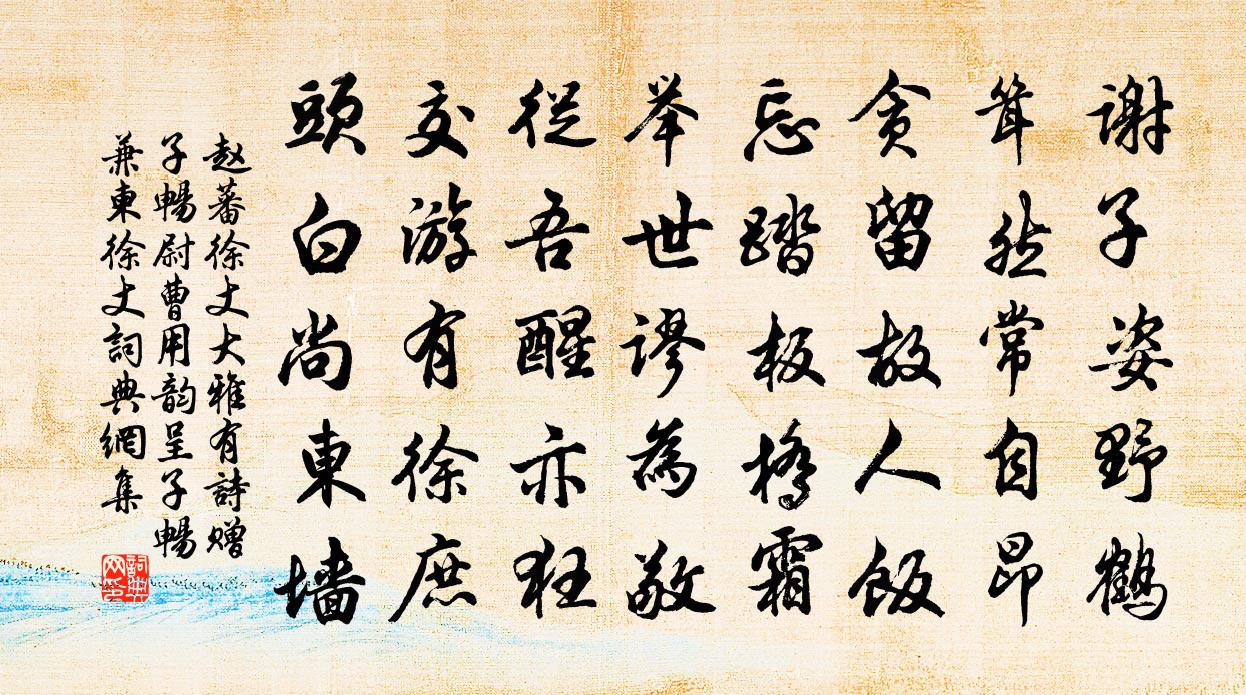 谢子姿野鹤
耸然常自昂
贪留故人饭
忘踏板橋霜
举世谬為敬
從吾醒亦狂
交游有徐庶
頭白尚東墙
赵蕃徐丈大雅有詩赠
子暢尉曹用韵呈子暢
兼東徐丈詞典網集
詞典网